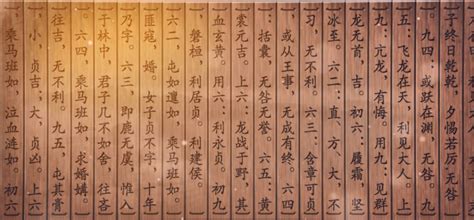 子终日乾乾，夕惕若厉，无咎
九四：或跃在渊，无咎。九
五：飞龙在天，利见大人。上
九：亢龙，有悔。用九：见群
龙无首，吉。初六：履霜，坚
冰至。六二：直方，大，不
习，无不利。六三：含章可贞
或从王事，无成有终。六四
：括囊，无咎无誉。六五：黄
裳元吉。上六：龙战于野，其
血玄黄。用六：利永贞。初九
磐桓，利居贞。利建侯。
六二，屯如邅如，乘马班如。
匪寇，婚。女子贞不字，十年
乃字。六三：即鹿无虞，惟入
于林中，君子几不如舍，往吝
六四 乘马班如，求婚媾，
往吉，无不利。九五，屯其膏
小，贞吉；大，贞凶。上六
，乘马班如，泣血涟如。初六